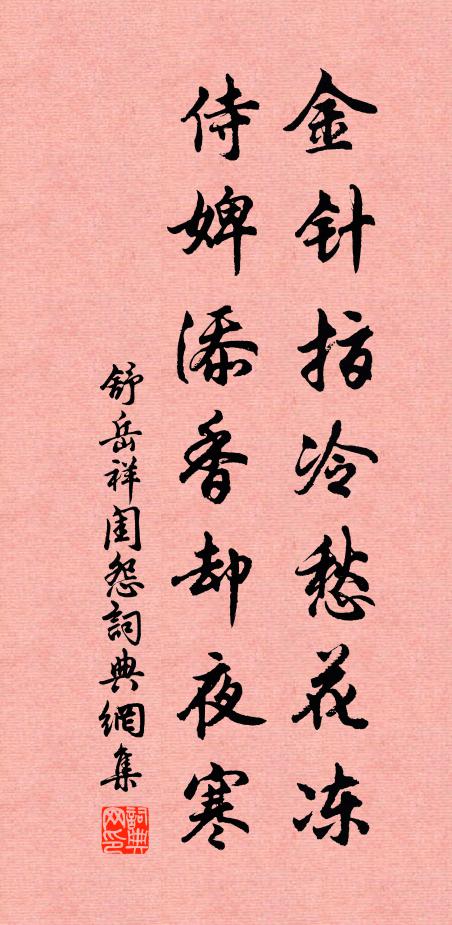 金针指冷愁花冻
侍婢添香却夜寒
舒岳祥闺怨詞典網集
詞典网印